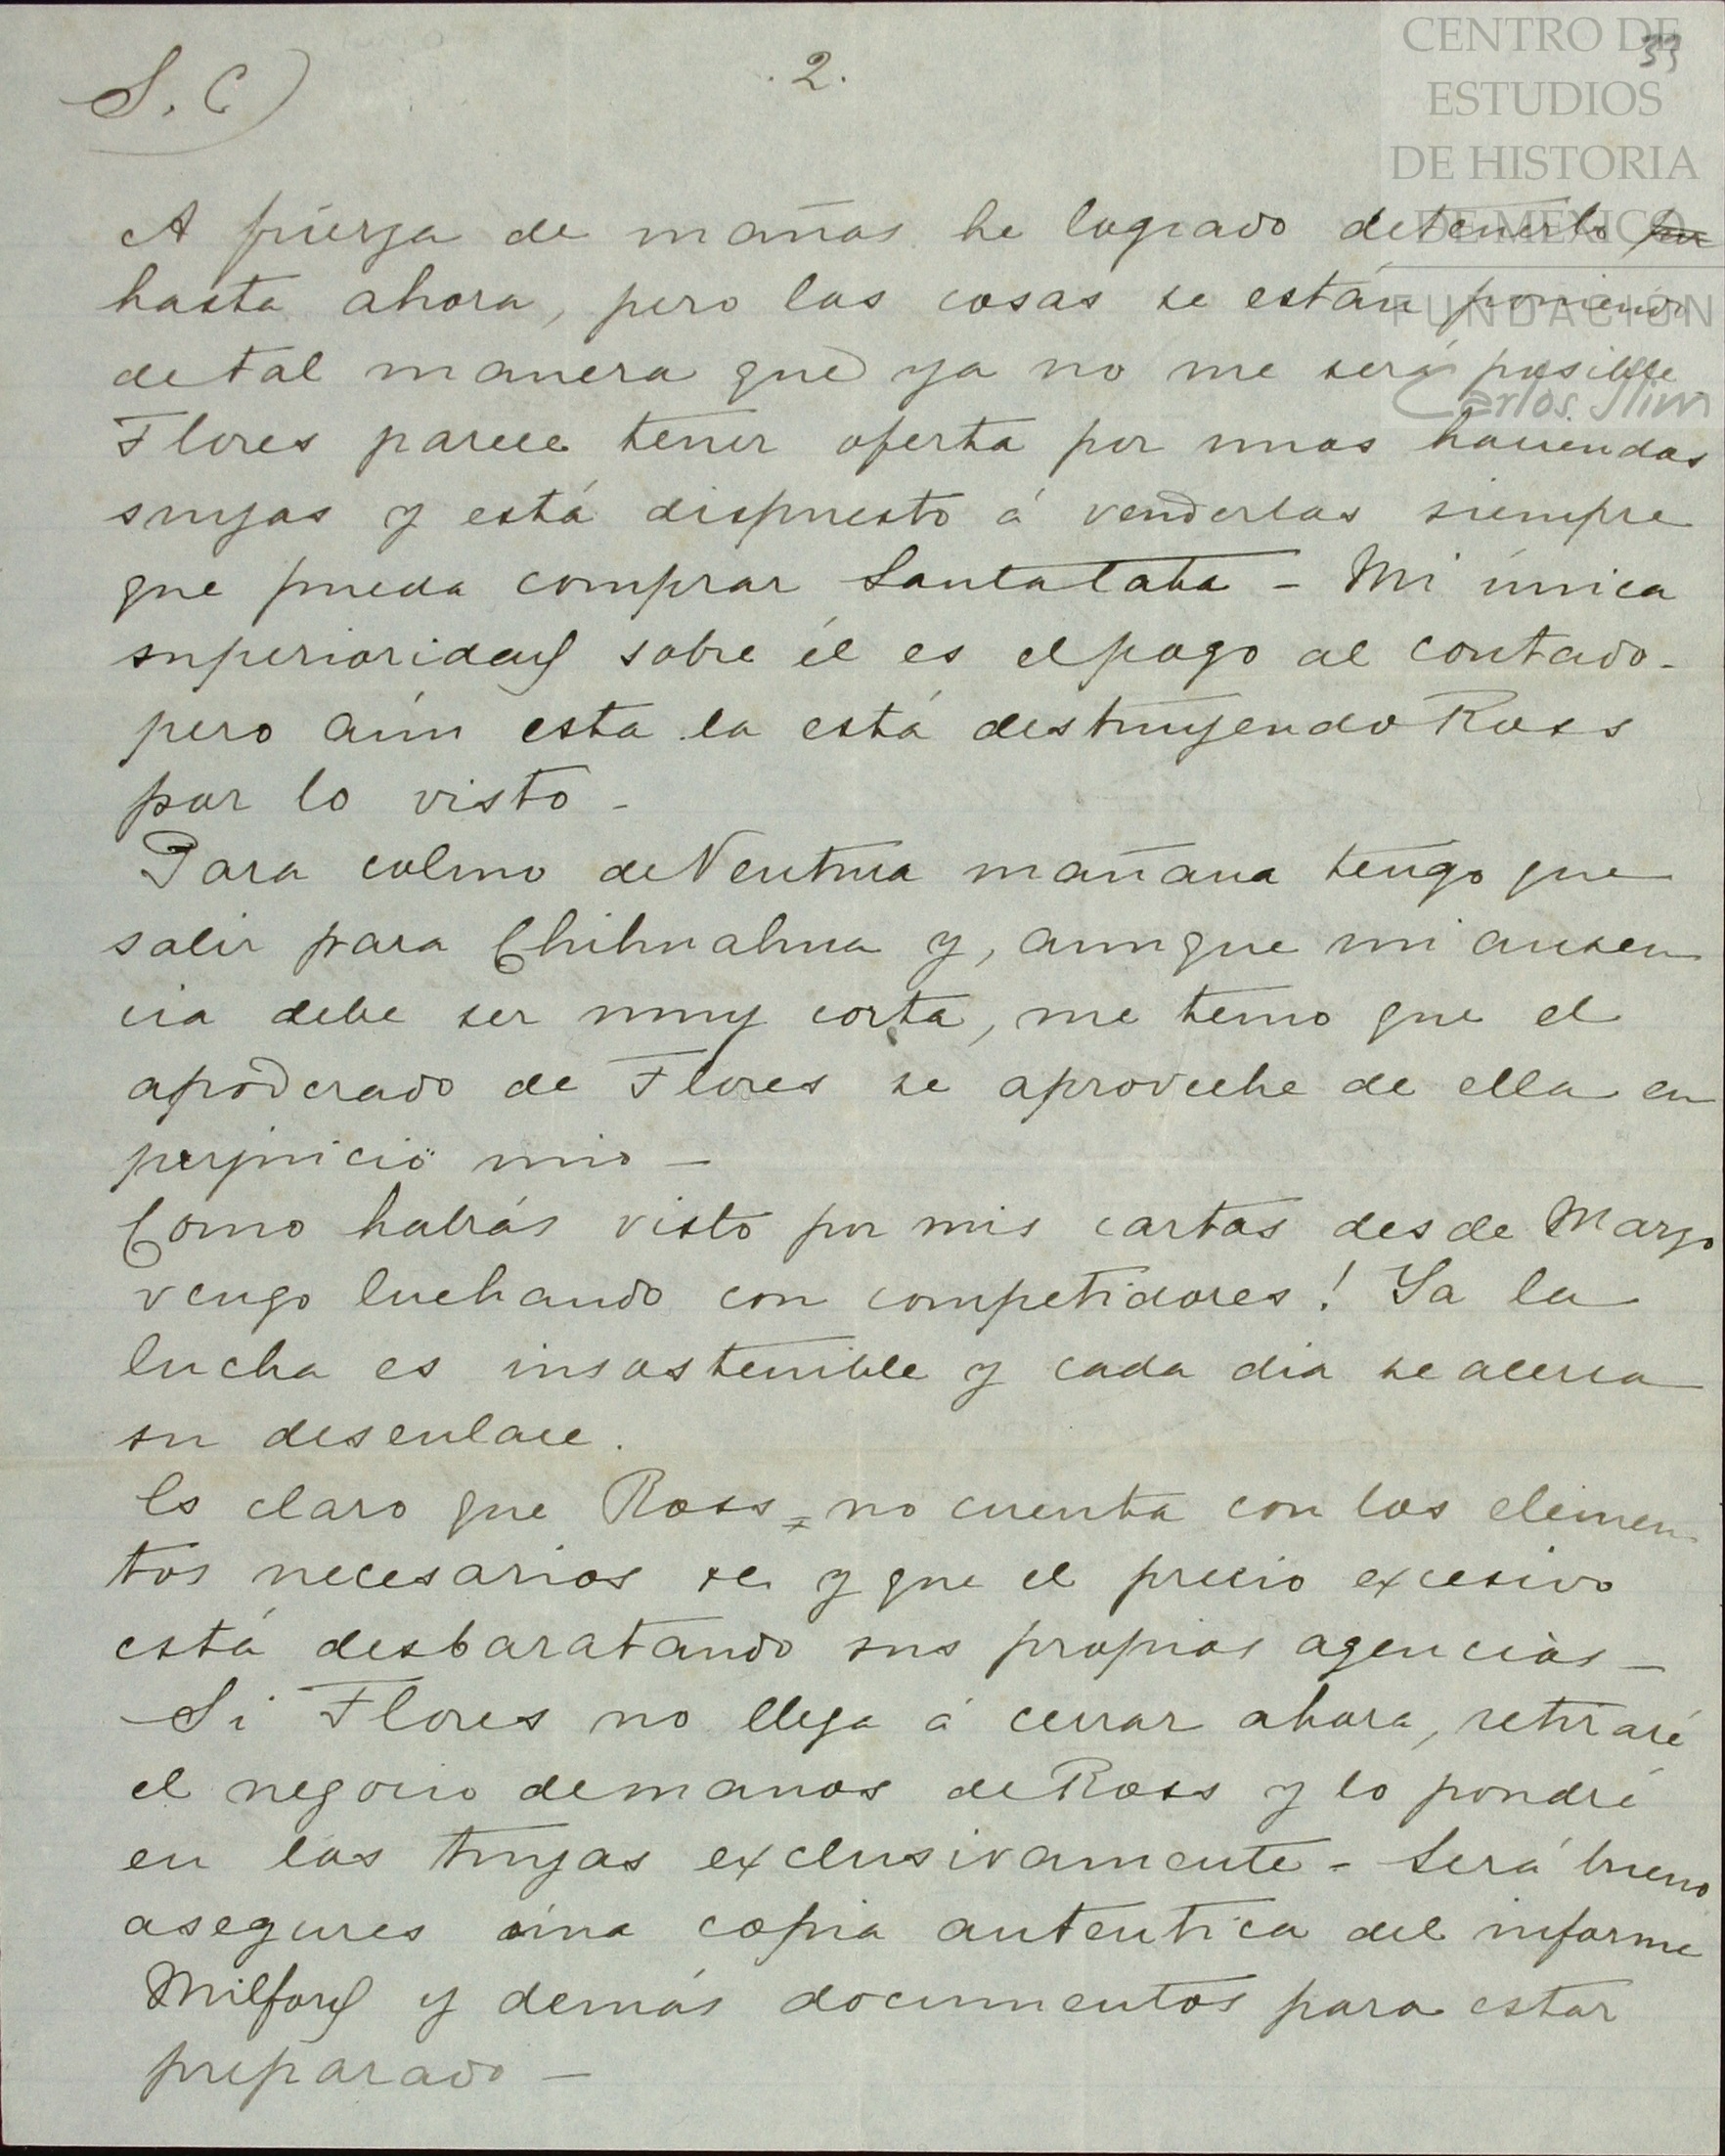 S. C)
. 2.
33
CENTRO DE
ESTUDIOS
DE HISTORIA
DE MEXICO
FUNDACIÓN
Carlos Slim
A fuerza de mañas he logrado detenerlo
hasta ahora, pero las cosas se están poniendo
de tal manera que ya no me será posible
Flores parece tener oferta por unas haciendas
suyas y está dispuesto á venderlas siempre
que pueda comprar Santa Cata - Mi única
superioridad sobre él es el pago al contado -
pero aún esta la está destruyendo Ross
por lo visto -
Para colmo de Ventura mañana tengo que
salir para Chihuahua y, aunque mi ausen
cia debe ser muy corta, me temo que el
apoderado de Flores se aproveche de ella en
perjuicio mio -
Como habrás visto por mis cartas desde Marzo
vengo luchando con competidores! Ya la
lucha es insostenible y cada dia se acerca
su desenlace.
Es claro que Ross = no cuenta con los elemen
tos necesarios se y que el precio excesivo
está desbaratando sus propias agencias -
Si Flores no llega á cerrar ahora, retiraré
el negocio de manos de Ross y lo pondré
en las tuyas exclusivamente - Será bueno
asegures una copia autentica del informe
Milford y demás documentos para estar
preparado -